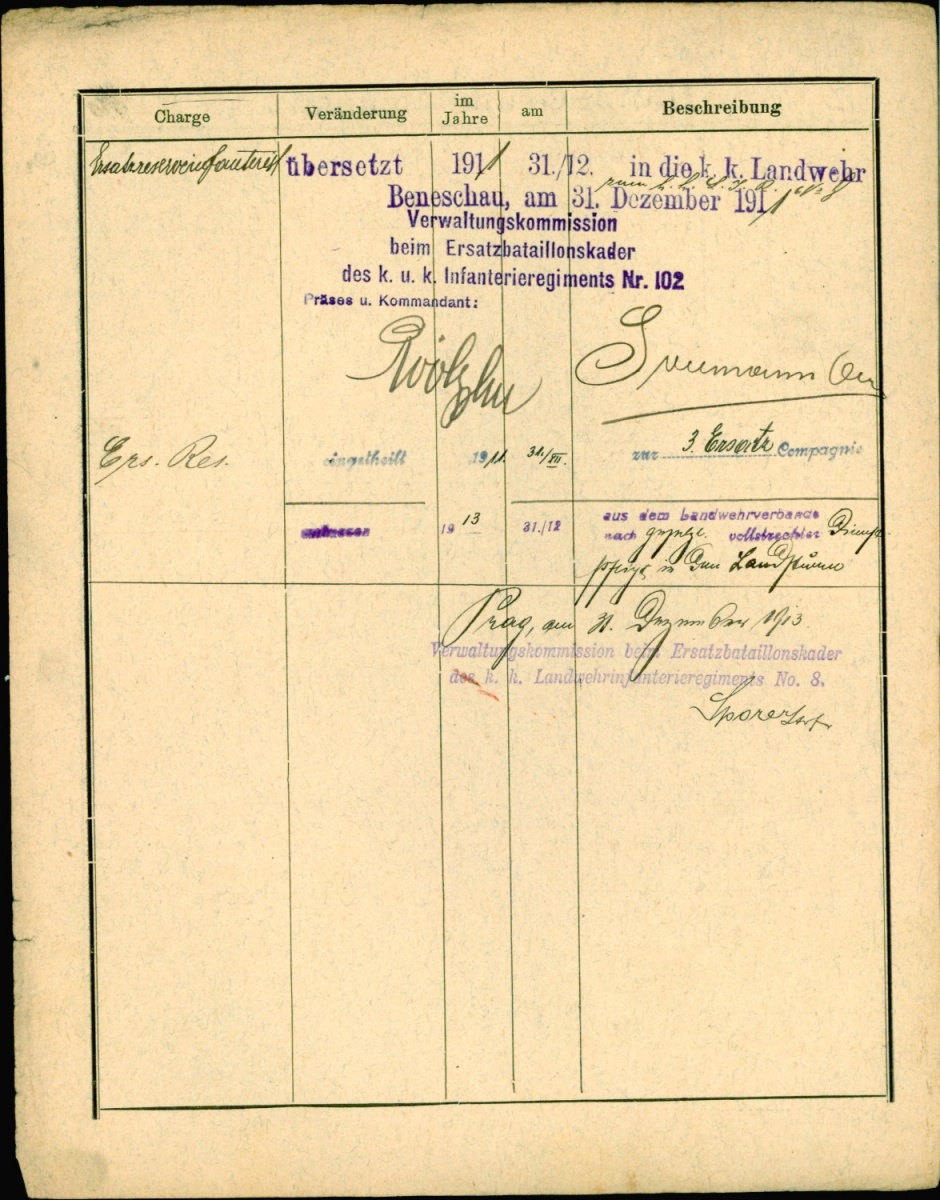 Charge Veränderung im Jahre am Beschreibung
Ersatzreserveinfanterist übersetzt 1911 31./12. in die k. k. Landwehr
zum k. k. L. I. R. No 8
Beneschau, am 31. Dezember 1911
Verwaltungskommission
beim Ersatzbataillonskader
des k. u. k. Infanterieregiments Nr. 102
Präses u. Kommandant:
Ers. Res. eingetheilt 1911. 31./XII. zur 3. Ersatz Compagnie
1913 31./12 aus dem Landwehrverbande
nach gesetzl. vollstreckter Dienst-
pflicht in den Landsturm
Prag, am 31. Dezember 1913
Verwaltungskommission beim Ersatzbataillonskader
des k. k. Landwehrinfanterieregiments No. 8.